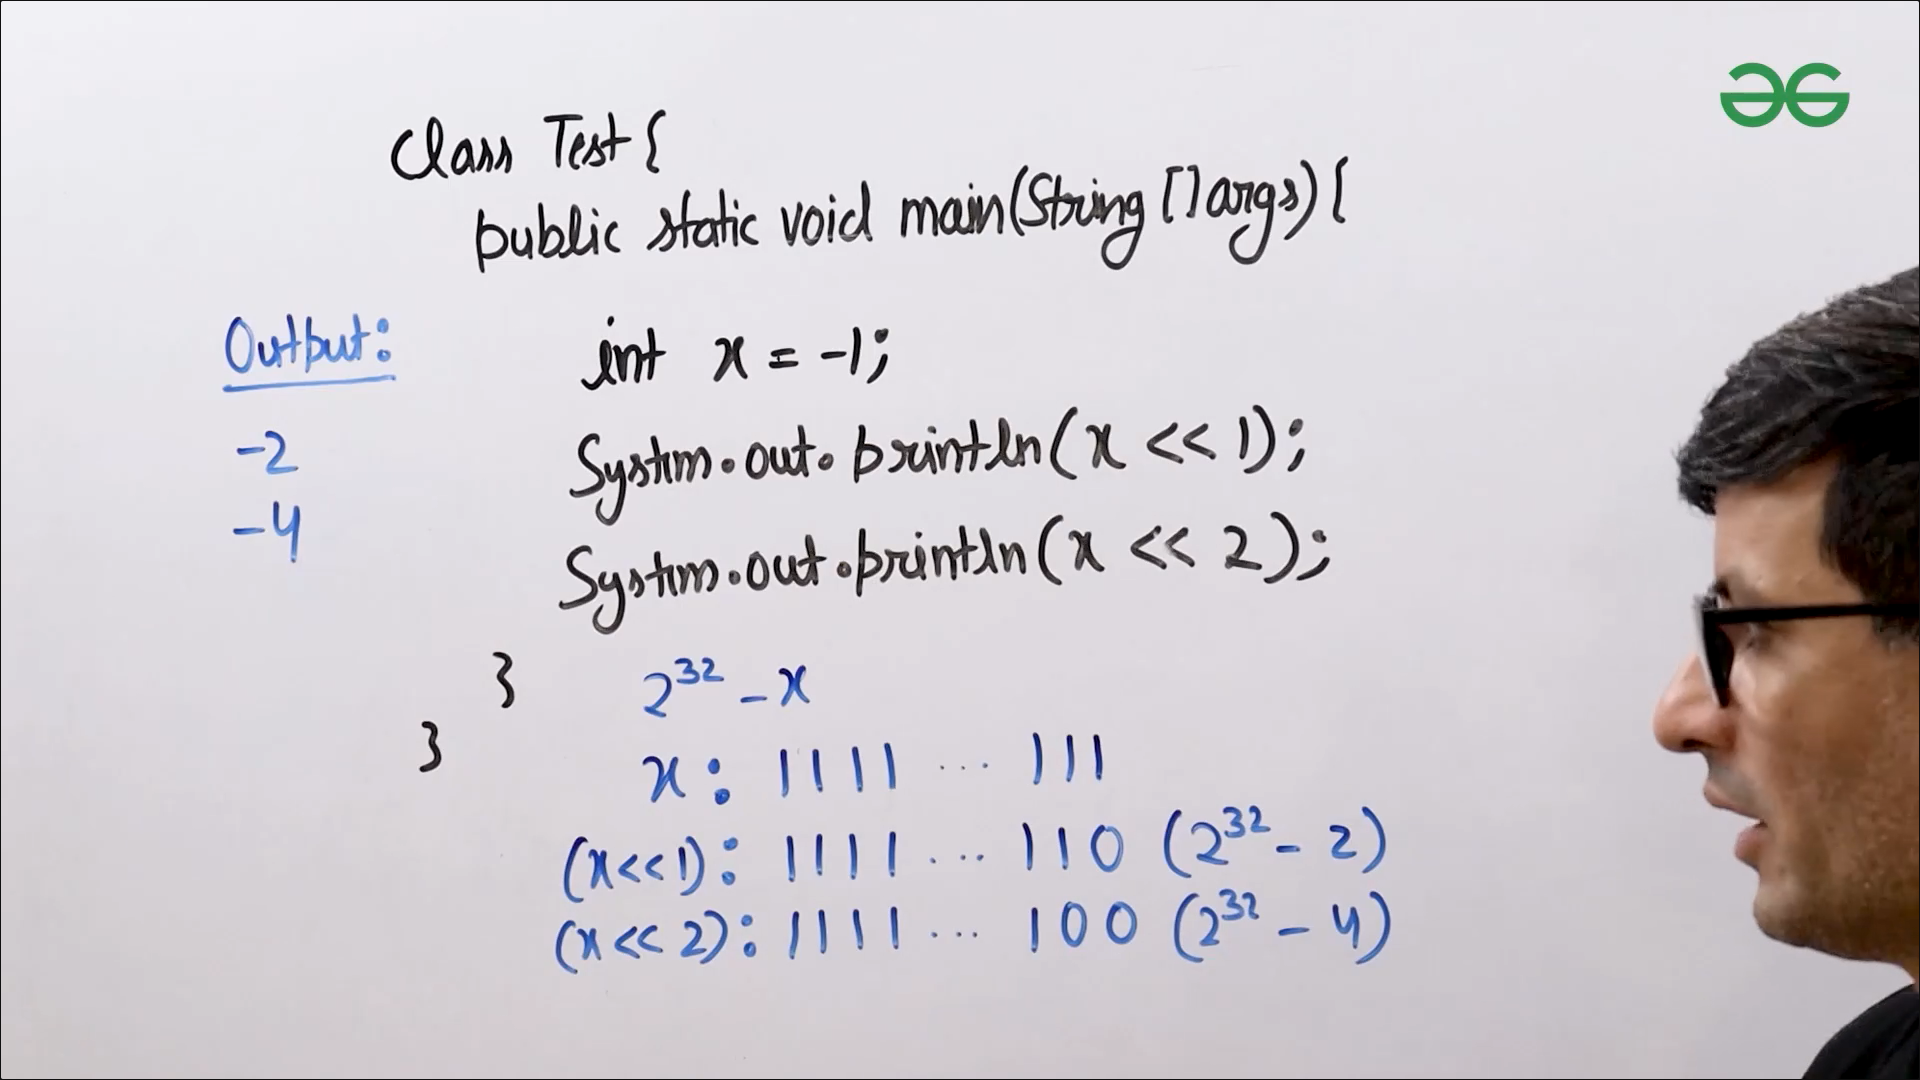 class Test{
public static void main(String []args){
Output:
int x = -1;
-2
System.out.println(x << 1);
-4
System.out.println(x << 2);
}
2³² - x
}
x: 1111 ... 111
(x<<1): 1111 ... 110 (2³² - 2)
(x<<2): 1111 ... 100 (2³² - 4)